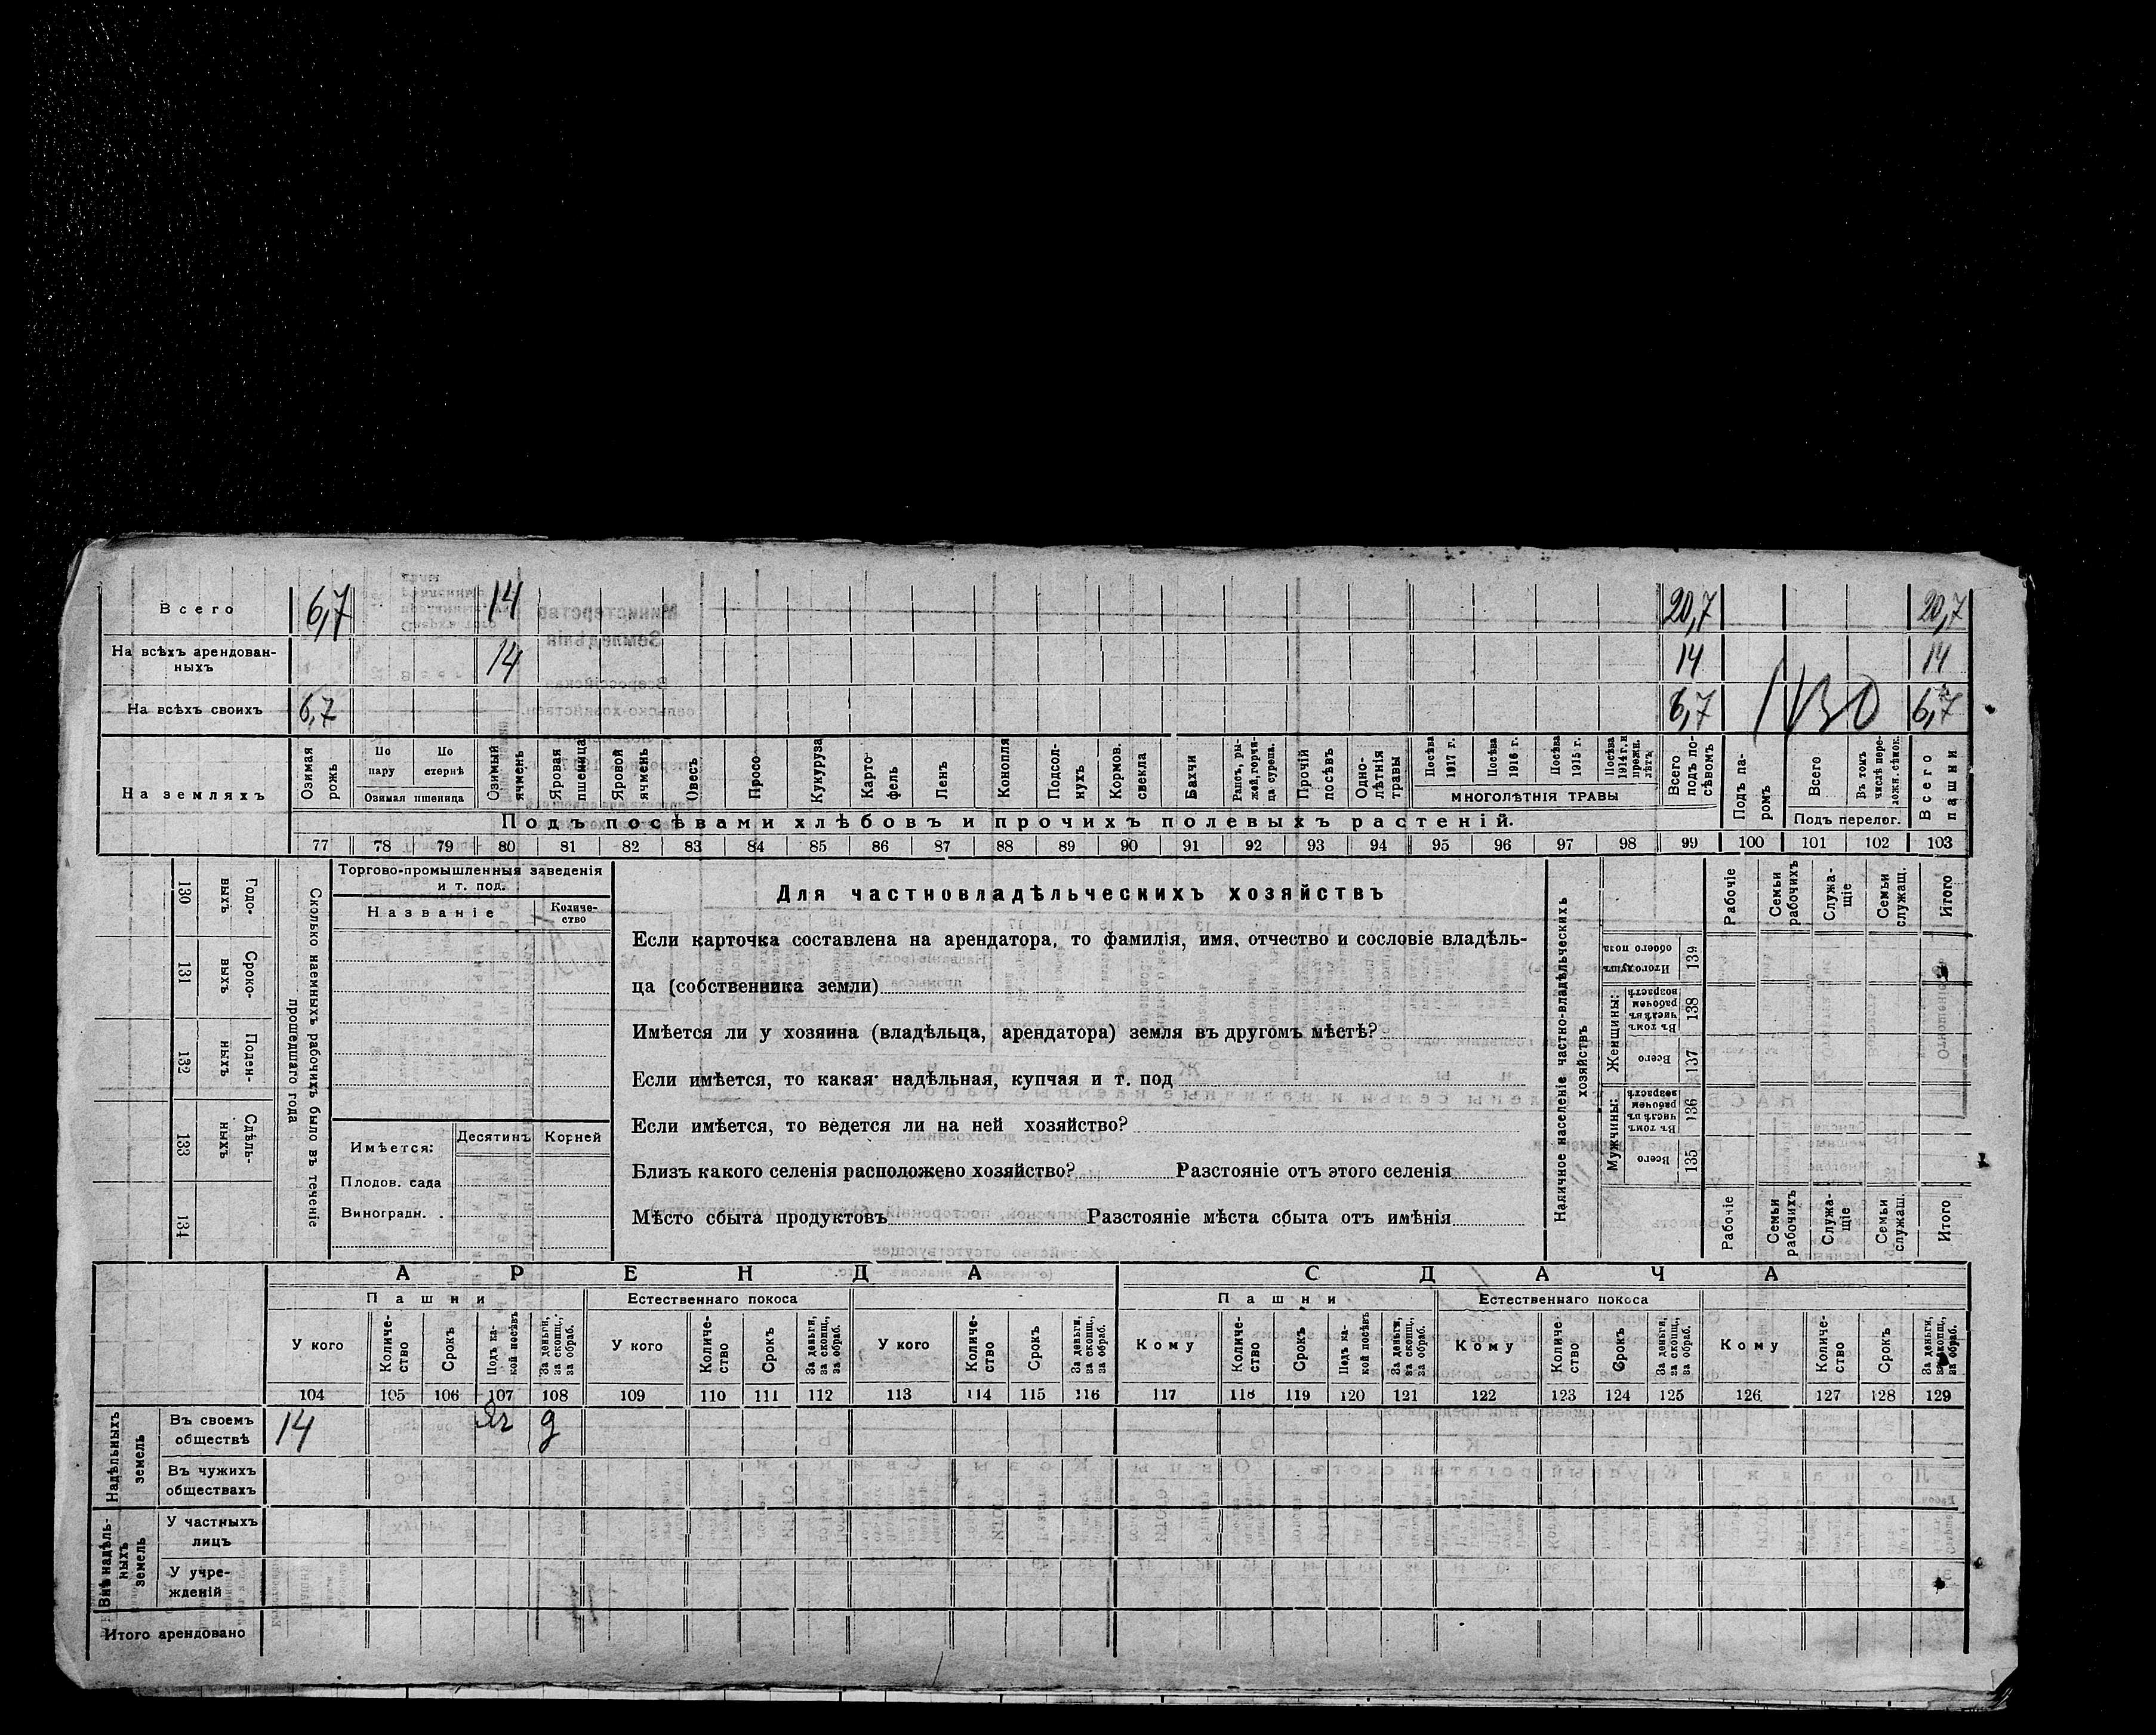 Всего 6,7 14 20,7 20,7
На всѣхъ арендован-
ныхъ 14 14 14
На всѣхъ своихъ 6,7 6,7 6,7
На земляхъ
Озимая рожь
По пару
По стернѣ
Озимая пшеница
Озимый ячмень
Яровая пшеница
Яровой ячмень
Овесъ
Просо
Кукуруза
Карто-
фель
Ленъ
Конопля
Подсол-
нухъ
Кормов. свекла
Бахчи
Рапсъ, ры-
жей, горчи-
ца сурепа.
Прочій посѣвъ
Одно-
лѣтнія травы
Посѣва 1917 г.
Посѣва 1916 г.
Посѣва 1915 г.
Посѣва 1914 г. и прежн. лѣтъ
МНОГОЛѢТНІЯ ТРАВЫ
Всего подъ по-
сѣвомъ
Подъ па-
ромъ
Всего
Въ томъ числѣ пере-
ложн. сѣнок.
Подъ перелог.
Всего пашни
Подъ посѣвами хлѣбовъ и прочихъ полевыхъ растеній.
77 78 79 80 81 82 83 84 85 86 87 88 89 90 91 92 93 94 95 96 97 98 99 100 101 102 103
130 Годо-
выхъ
131 Сроко-
выхъ
132 Поден-
ныхъ
133 Сдѣль-
ныхъ
134
Сколько наемныхъ рабочихъ было въ теченіе
прошедшаго года
Торгово-промышленныя заведенія
и т. под.
Названіе
Количе-
ство
Имѣется:
Десятинъ
Корней
Плодов. сада
Виноградн. .
Для частновладѣльческихъ хозяйствъ
Если карточка составлена на арендатора, то фамилія, имя, отчество и сословіе владѣль-
ца (собственника земли)
Имѣется ли у хозяина (владѣльца, арендатора) земля въ другомъ мѣстѣ?
Если имѣется, то какая: надѣльная, купчая и т. под
Если имѣется, то ведется ли на ней хозяйство?
Близъ какого селенія расположено хозяйство? Разстояніе отъ этого селенія
Мѣсто сбыта продуктовъ Разстояніе мѣста сбыта отъ имѣнія
Наличное населеніе частно-владѣльческихъ
хозяйствъ
Рабочіе
Семьи рабочихъ
Служа-
щіе
Семьи служащ.
Итого
Итого душъ обоего пола 139
Женщины:
Въ томъ числѣ въ рабочемъ возрастѣ 138
Всего 137
Мужчины:
Въ томъ числѣ въ рабочемъ возрастѣ 136
Всего 135
Рабочіе
Семьи рабочихъ
Служа-
щіе
Семьи служащ.
Итого
АРЕНДА СДАЧА
Пашни Естественнаго покоса Пашни Естественнаго покоса
У кого
Количе-
ство
Срокъ
Подъ ка-
кой посѣвъ
За деньги, за скопщ., за обраб.
У кого
Количе-
ство
Срокъ
За деньги, за скопщ., за обраб.
У кого
Количе-
ство
Срокъ
За деньги, за скопщ., за обраб.
Кому
Количе-
ство
Срокъ
Подъ ка-
кой посѣвъ
За деньги, за скопщ., за обраб.
Кому
Количе-
ство
Срокъ
За деньги, за скопщ., за обраб.
Кому
Количе-
ство
Срокъ
За деньги, за скопщ., за обраб.
104 105 106 107 108 109 110 111 112 113 114 115 116 117 118 119 120 121 122 123 124 125 126 127 128 129
Надѣльныхъ
земель
Въ своемъ
обществѣ 14 Яч д
Въ чужихъ
обществахъ
Внѣ надѣль-
ныхъ
земель
У частныхъ
лицъ
У учре-
жденій
Итого арендовано